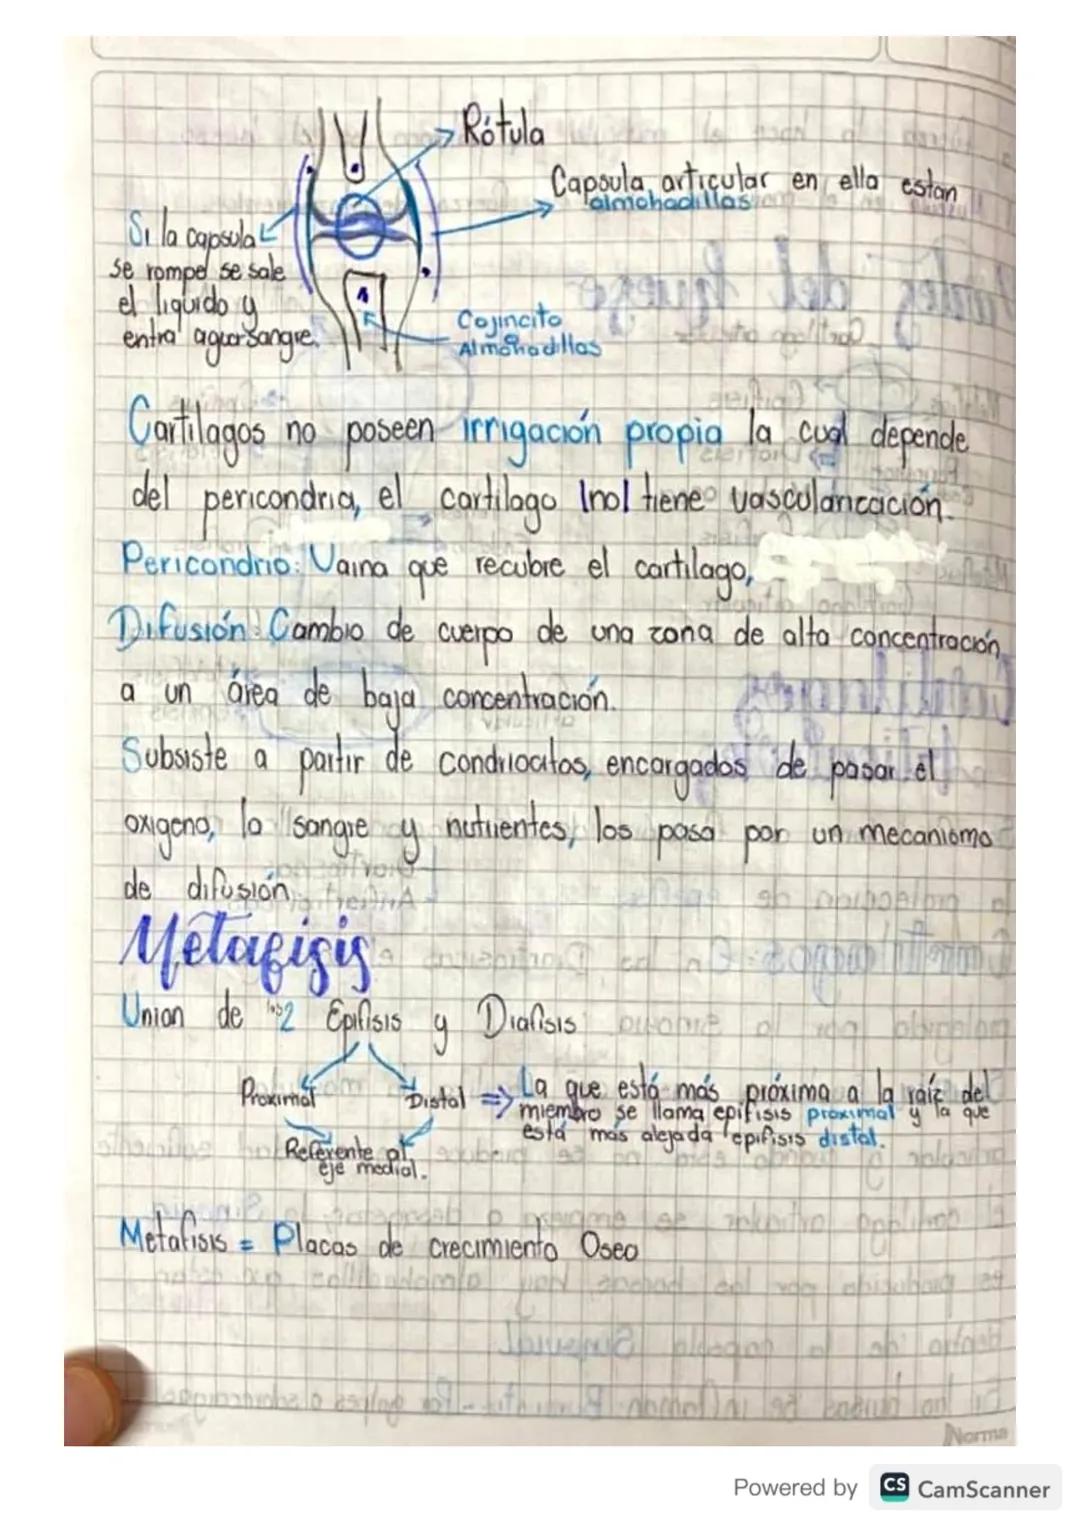 Rótula
Capsula articular en ella estan
almohadillas
Si la capsula
se rompe se sale
el liquido y
entra agua sangre.
Cojincito
Almohadillas
Cartilagos no poseen irrigación propia la cual depende
del pericondria, el cartilago |no| tiene vascularización.
Pericondrio: Vaina que recubre el cartilago,
Difusión: Cambio de cuerpo de una zona de alta concentración
a un área de baja concentración.
Subsiste a partir de condriocitos, encargados de pasar el
oxigeno, la sangre y nutrientes, los pasa por un mecanismo
de difusión.
Metafisis
Union de las 2 Epifisis y Diafisis
Proximal Distal => La que está más próxima a la raíz del
miembro se llama epifisis proximal y la que
está más alejada epifisis distal.
Referente al
eje medial.
Metafisis = Placas de crecimiento Oseo
Norma
Powered by CS CamScanner